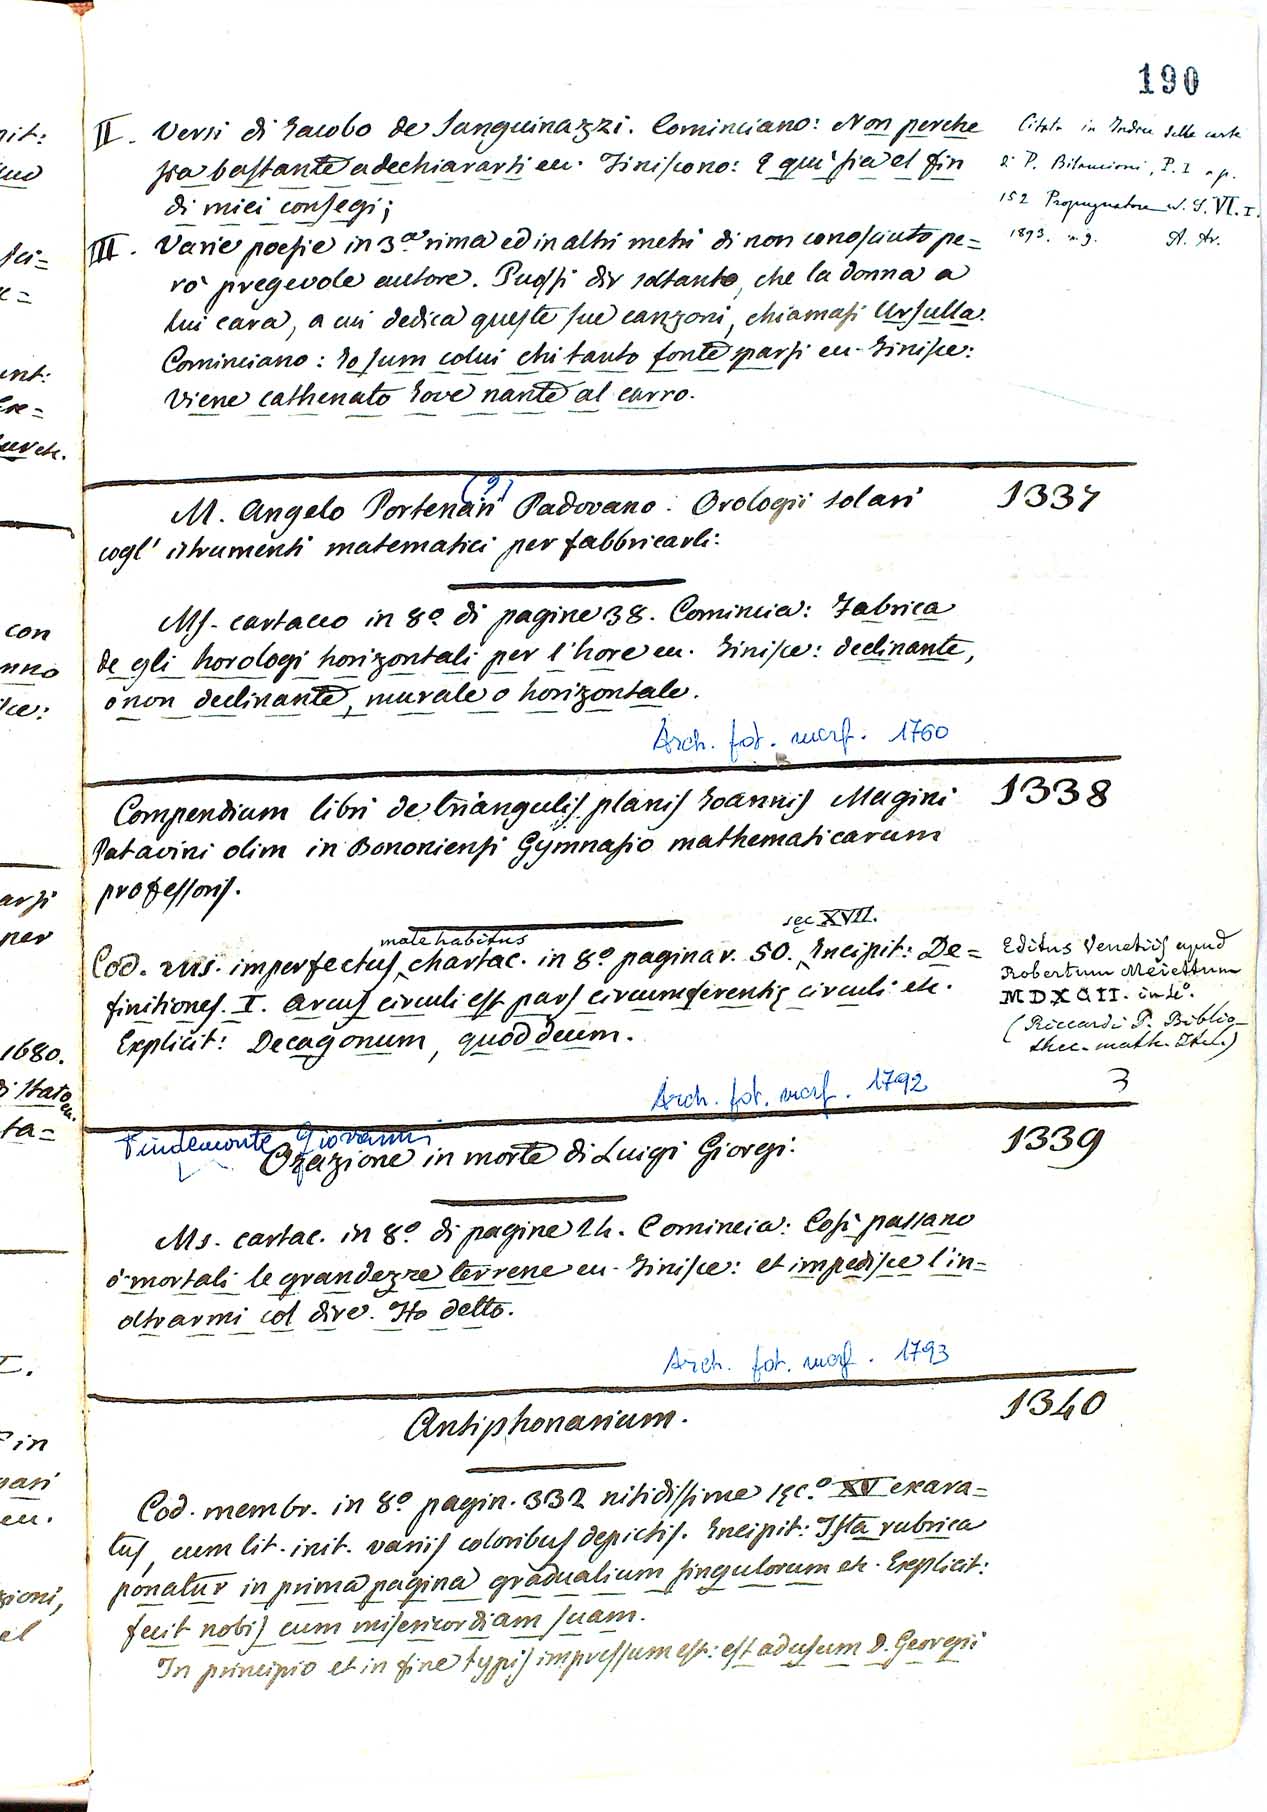 190
II. Versi di Jacobo de Sanguinazzi. Cominciano: Non perche
sia bastante a dechiararti ec. Finiscono: E qui sia el fin
di miei consegi;
Citata in Indice delle carte
di P. Bilancioni, P. I a p.
152 Propugnatore N. S. VI. I.
1893. A. Av.
III. Varie poesie in 3.a rima ed in altri metri di non conosciuto pe=
rò pregevole autore. Puossi dir soltanto, che la donna a
lui cara, a cui dedica queste sue canzoni, chiamasi Ursulla.
Cominciano: Io sum colui chi tanto fonte sparsi ec. Finisce:
Viene cathenato Iove nante al carro.
1337
M. Angelo Portenari (?) Padovano. Orologii solari
cogl' istrumenti matematici per fabbricarli:
Ms. cartaceo in 8.o di pagine 38. Comincia: Fabrica
de gli horologi horizontali per l'hore ec. Finisce: declinante,
o non declinante, murale o horizontale.
Arch. fot. marf. 1760
1338
Compendium libri de triangulis planis Ioannis Magini
Patavini olim in Bononiensi Gymnasio mathematicarum
professoris.
male habitus sec XVII.
Cod. ms. imperfectus, chartac. in 8.o paginar. 50. Incipit: De=
finitiones. I. Arcus circuli est pars circumferentię circuli etc.
Explicit: Decagonum, quod deum.
Editus Venetiis apud
Robertum Meiettum
MDXCII. in 4.o
(Riccardi P. Biblio-
thec. math. Ital.)
3
Arch. fot. marf. 1792
1339
Pindemonte Giovanni
Orazione in morte di Luigi Giorgi:
Ms. cartac. in 8.o di pagine 24. Comincia: Così passano
o mortali le grandezze terrene ec. Finisce: et impedisce l'in=
oltrarmi col dire. Ho detto.
Arch. fot. marf. 1793
1340
Antiphonarium.
Cod. membr. in 8.o pagin. 332 nitidissime sęc.o XV exara=
tus, cum lit. init. variis coloribus depictis. Incipit: Ista rubrica
ponatur in prima pagina gradualium singulorum etc. Explicit:
fecit nobis cum misericordiam suam.
In principio et in fine typis impressum est: est ad usum D. Georgii